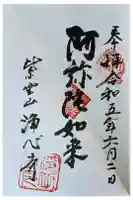 奉拝 令和五年六月二日
阿弥陀如来
紫雲山 浄心寺